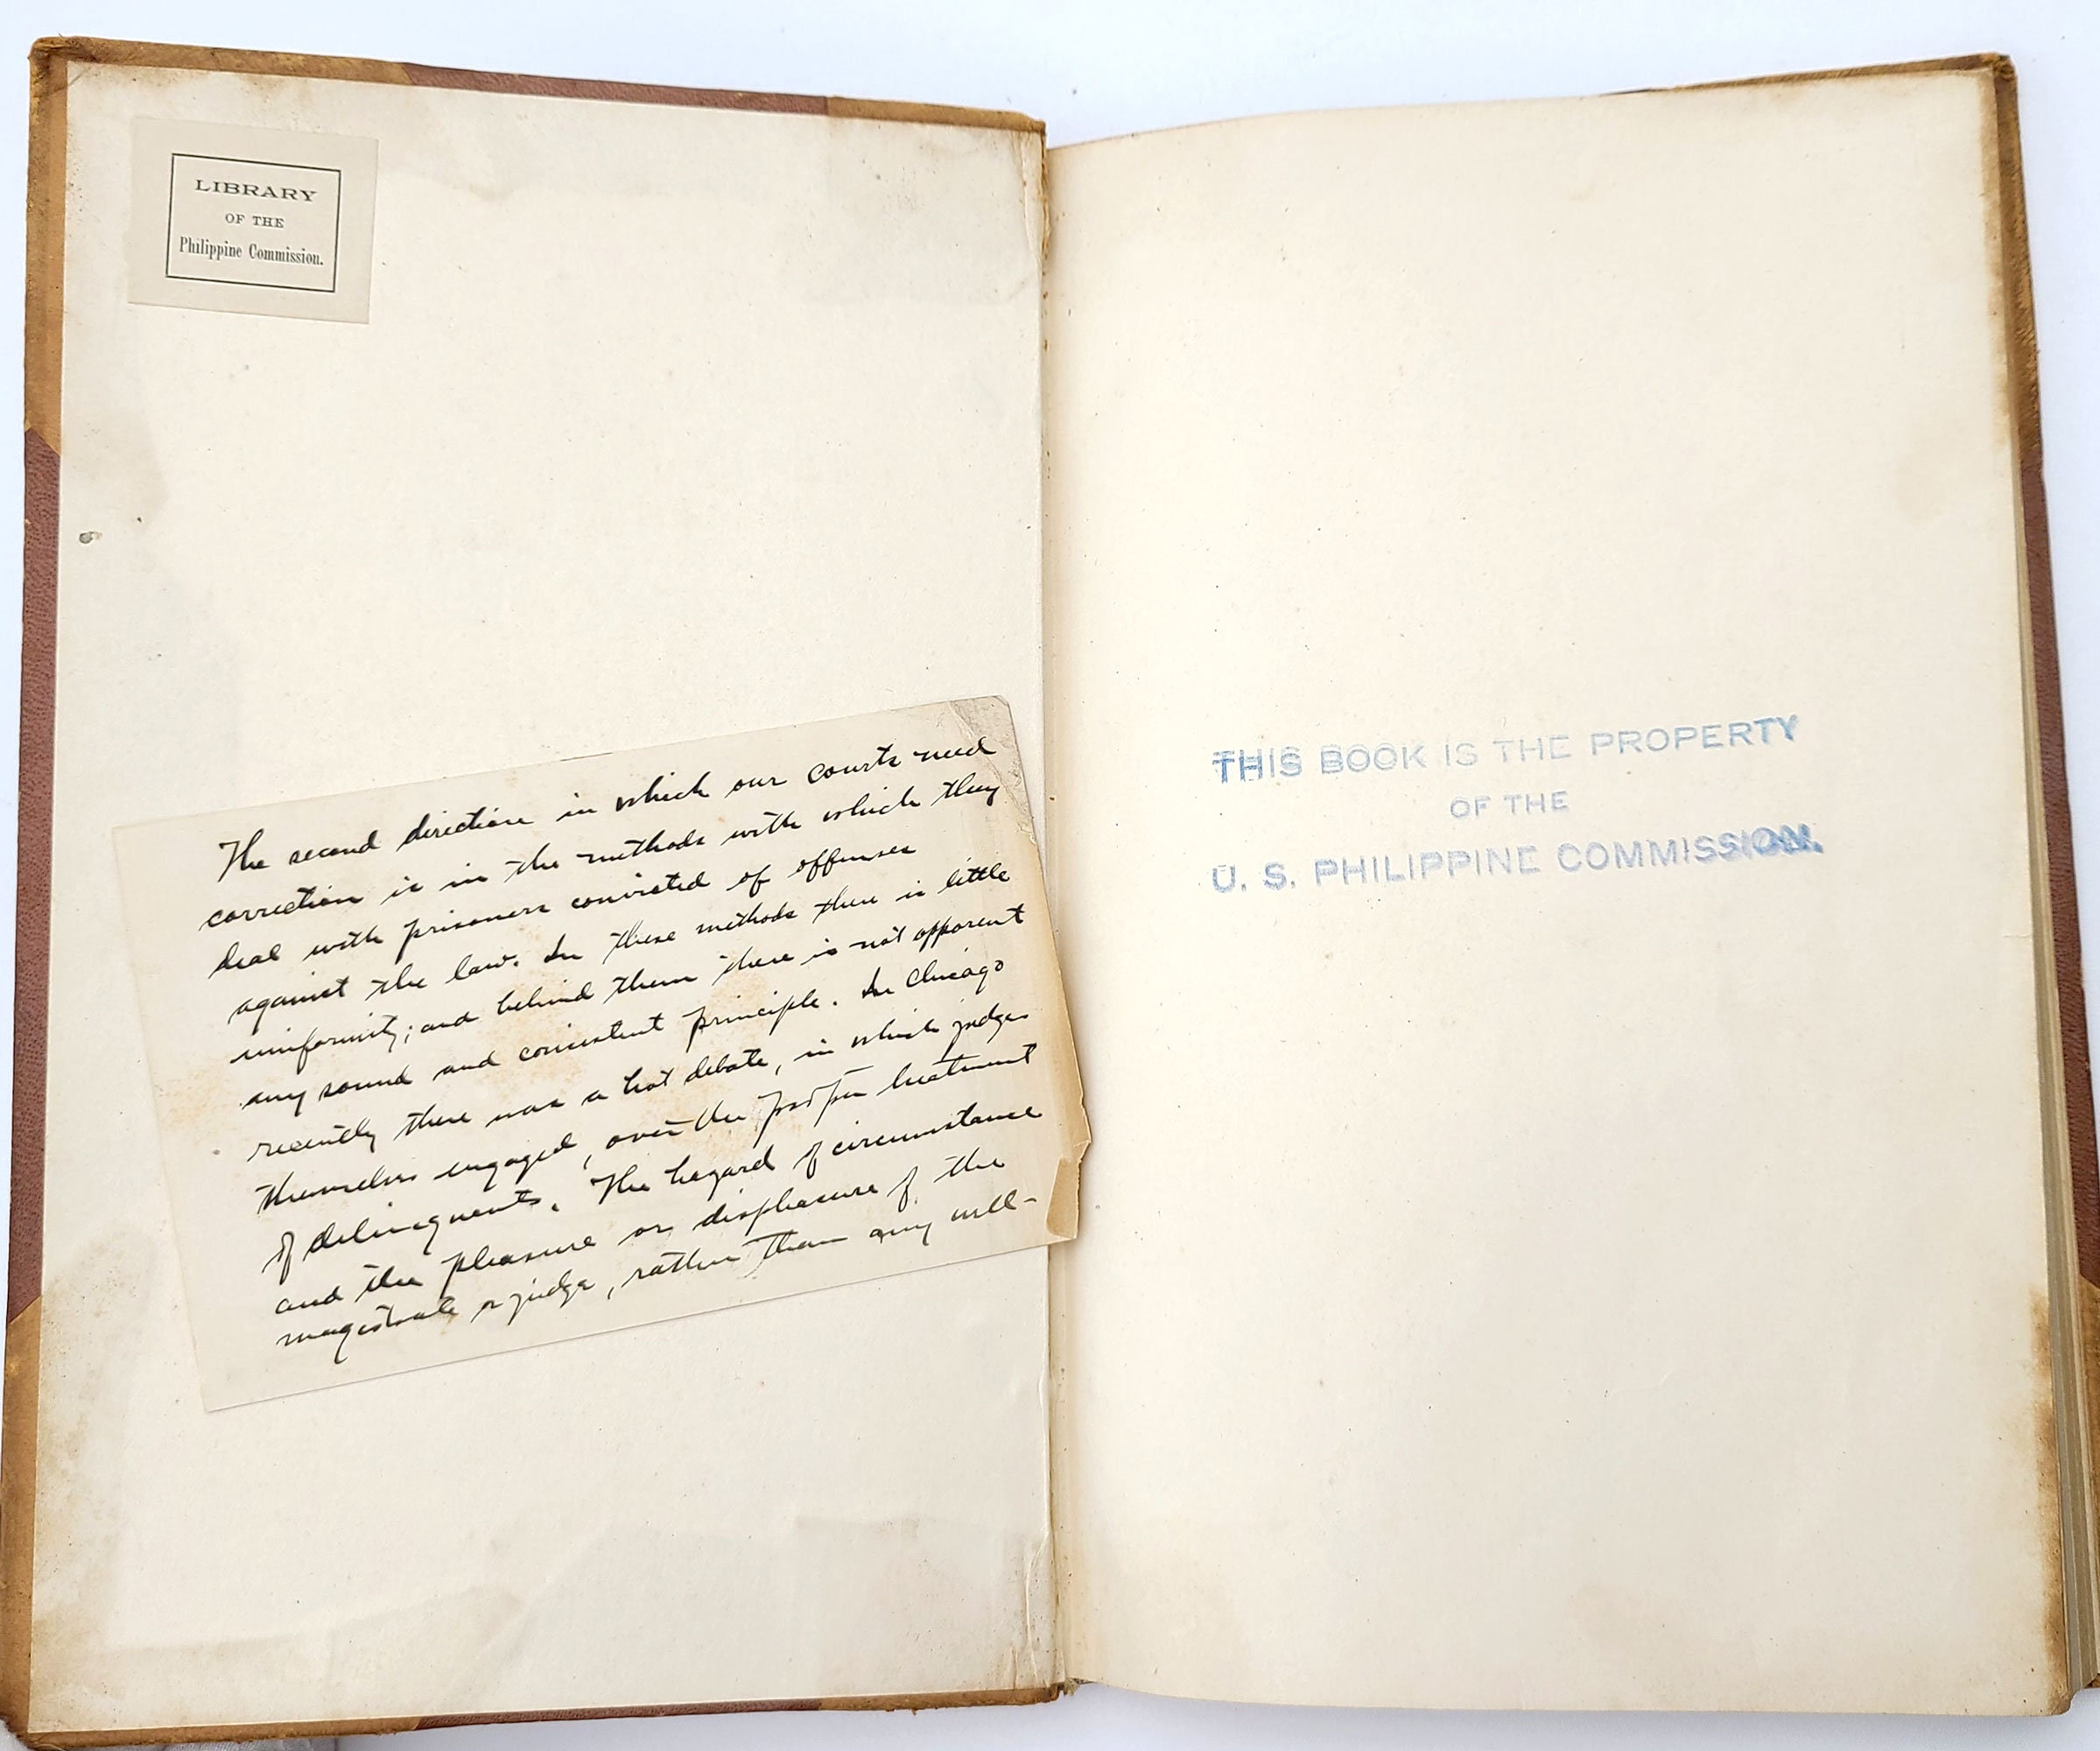 LIBRARY
OF THE
Philippine Commission.
The second direction in which our courts need
correction is in the methods with which they
deal with prisoners convicted of offenses
against the law. In these methods there is little
uniformity; and behind them there is not apparent
any sound and consistent principle. In Chicago
recently there was a hot debate, in which judges
themselves engaged, over the proper treatment
of delinquents. The hazard of circumstance
and the pleasure or displeasure of the
magistrate or judge, rather than any well-
THIS BOOK IS THE PROPERTY
OF THE
U. S. PHILIPPINE COMMISSION.